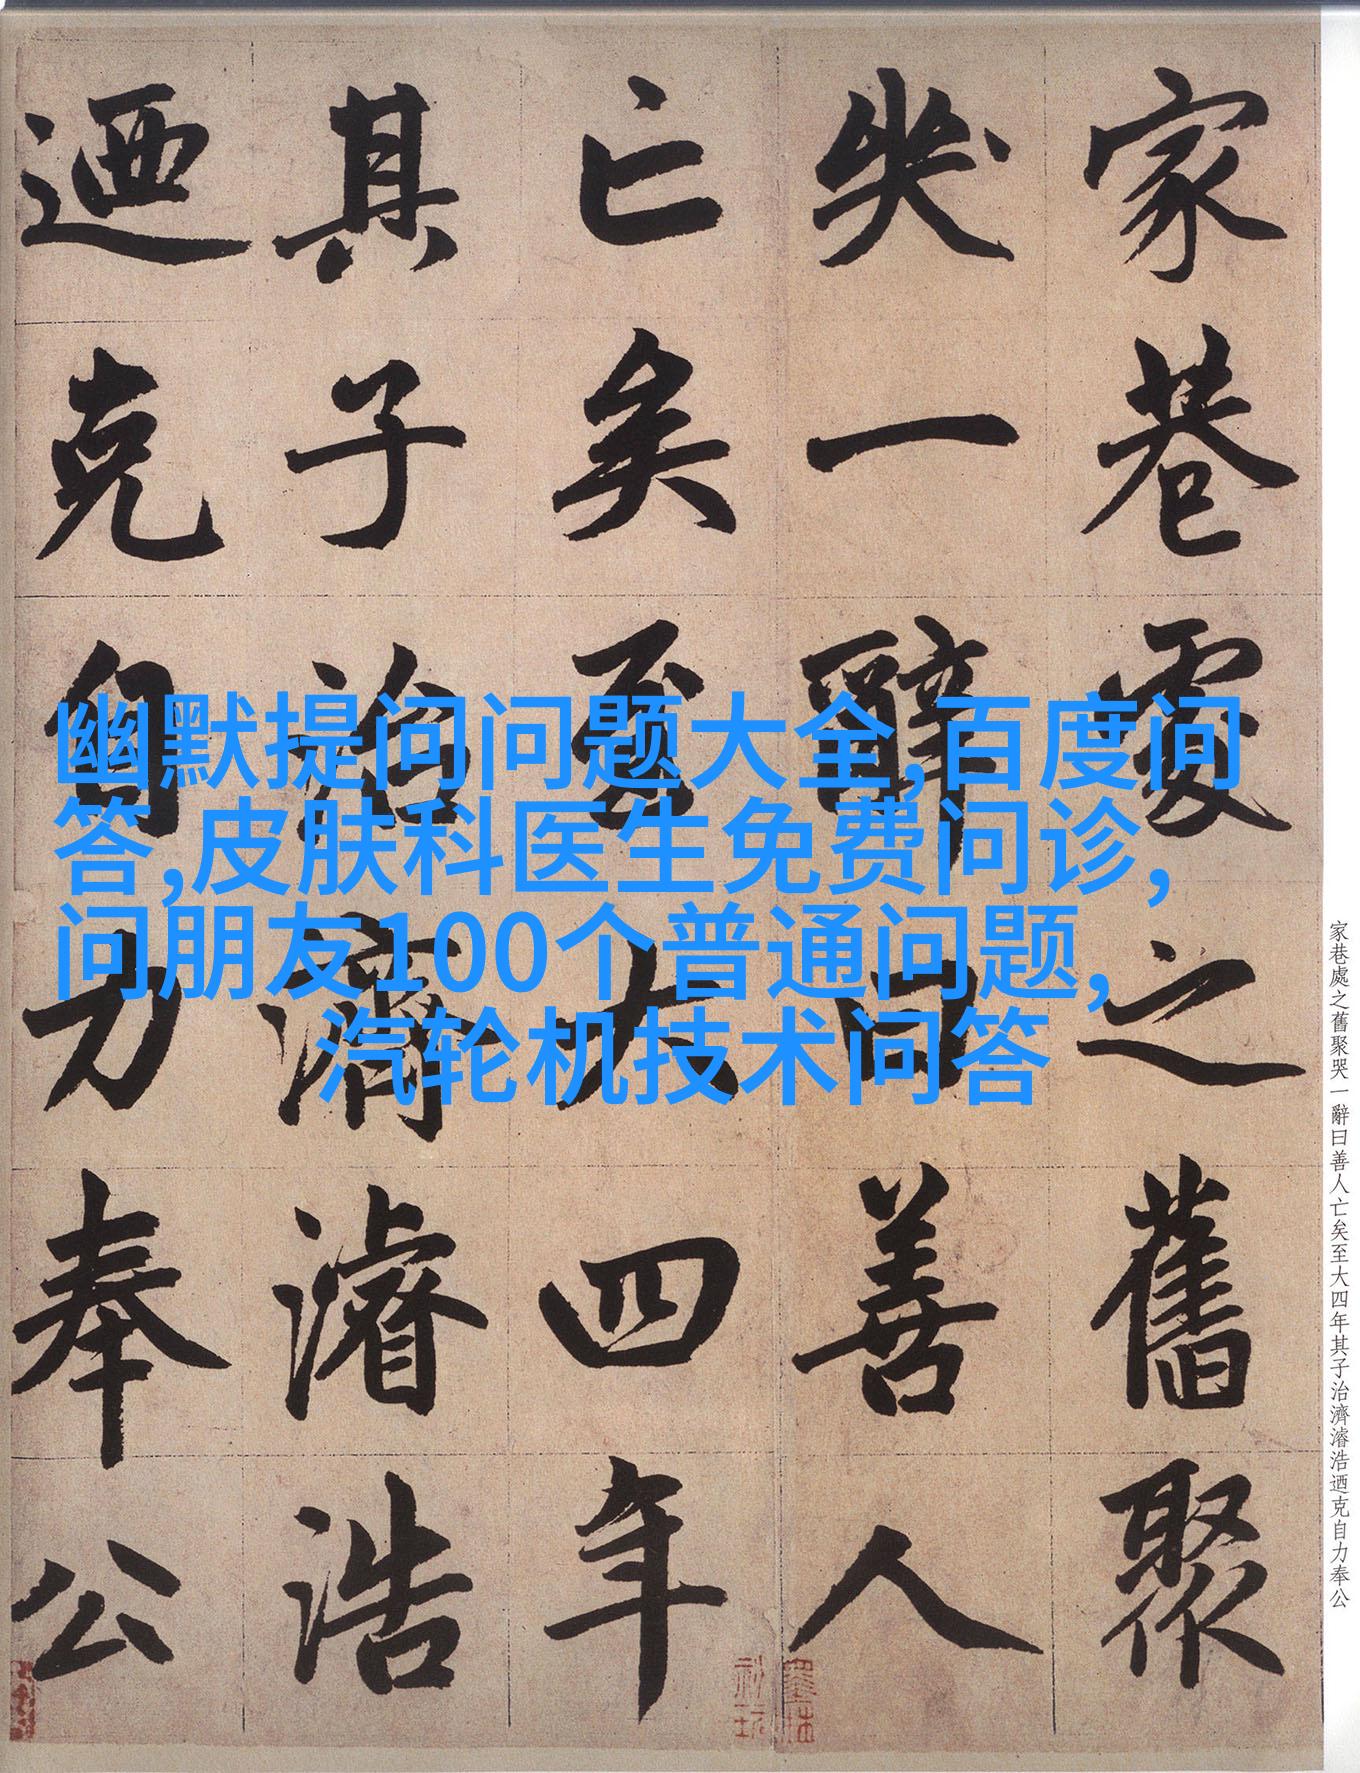 家巷處之舊聚
哭一辭曰善人
亡矣至大四年
其子治濟濬浩
迺克自力奉公
幽默提问问题大全,百度问
答,皮肤科医生免费问诊,
问朋友100个普通问题,
汽轮机技术问答
家巷處之舊聚哭一辭曰善人亡矣至大四年其子治濟濬浩迺克自力奉公